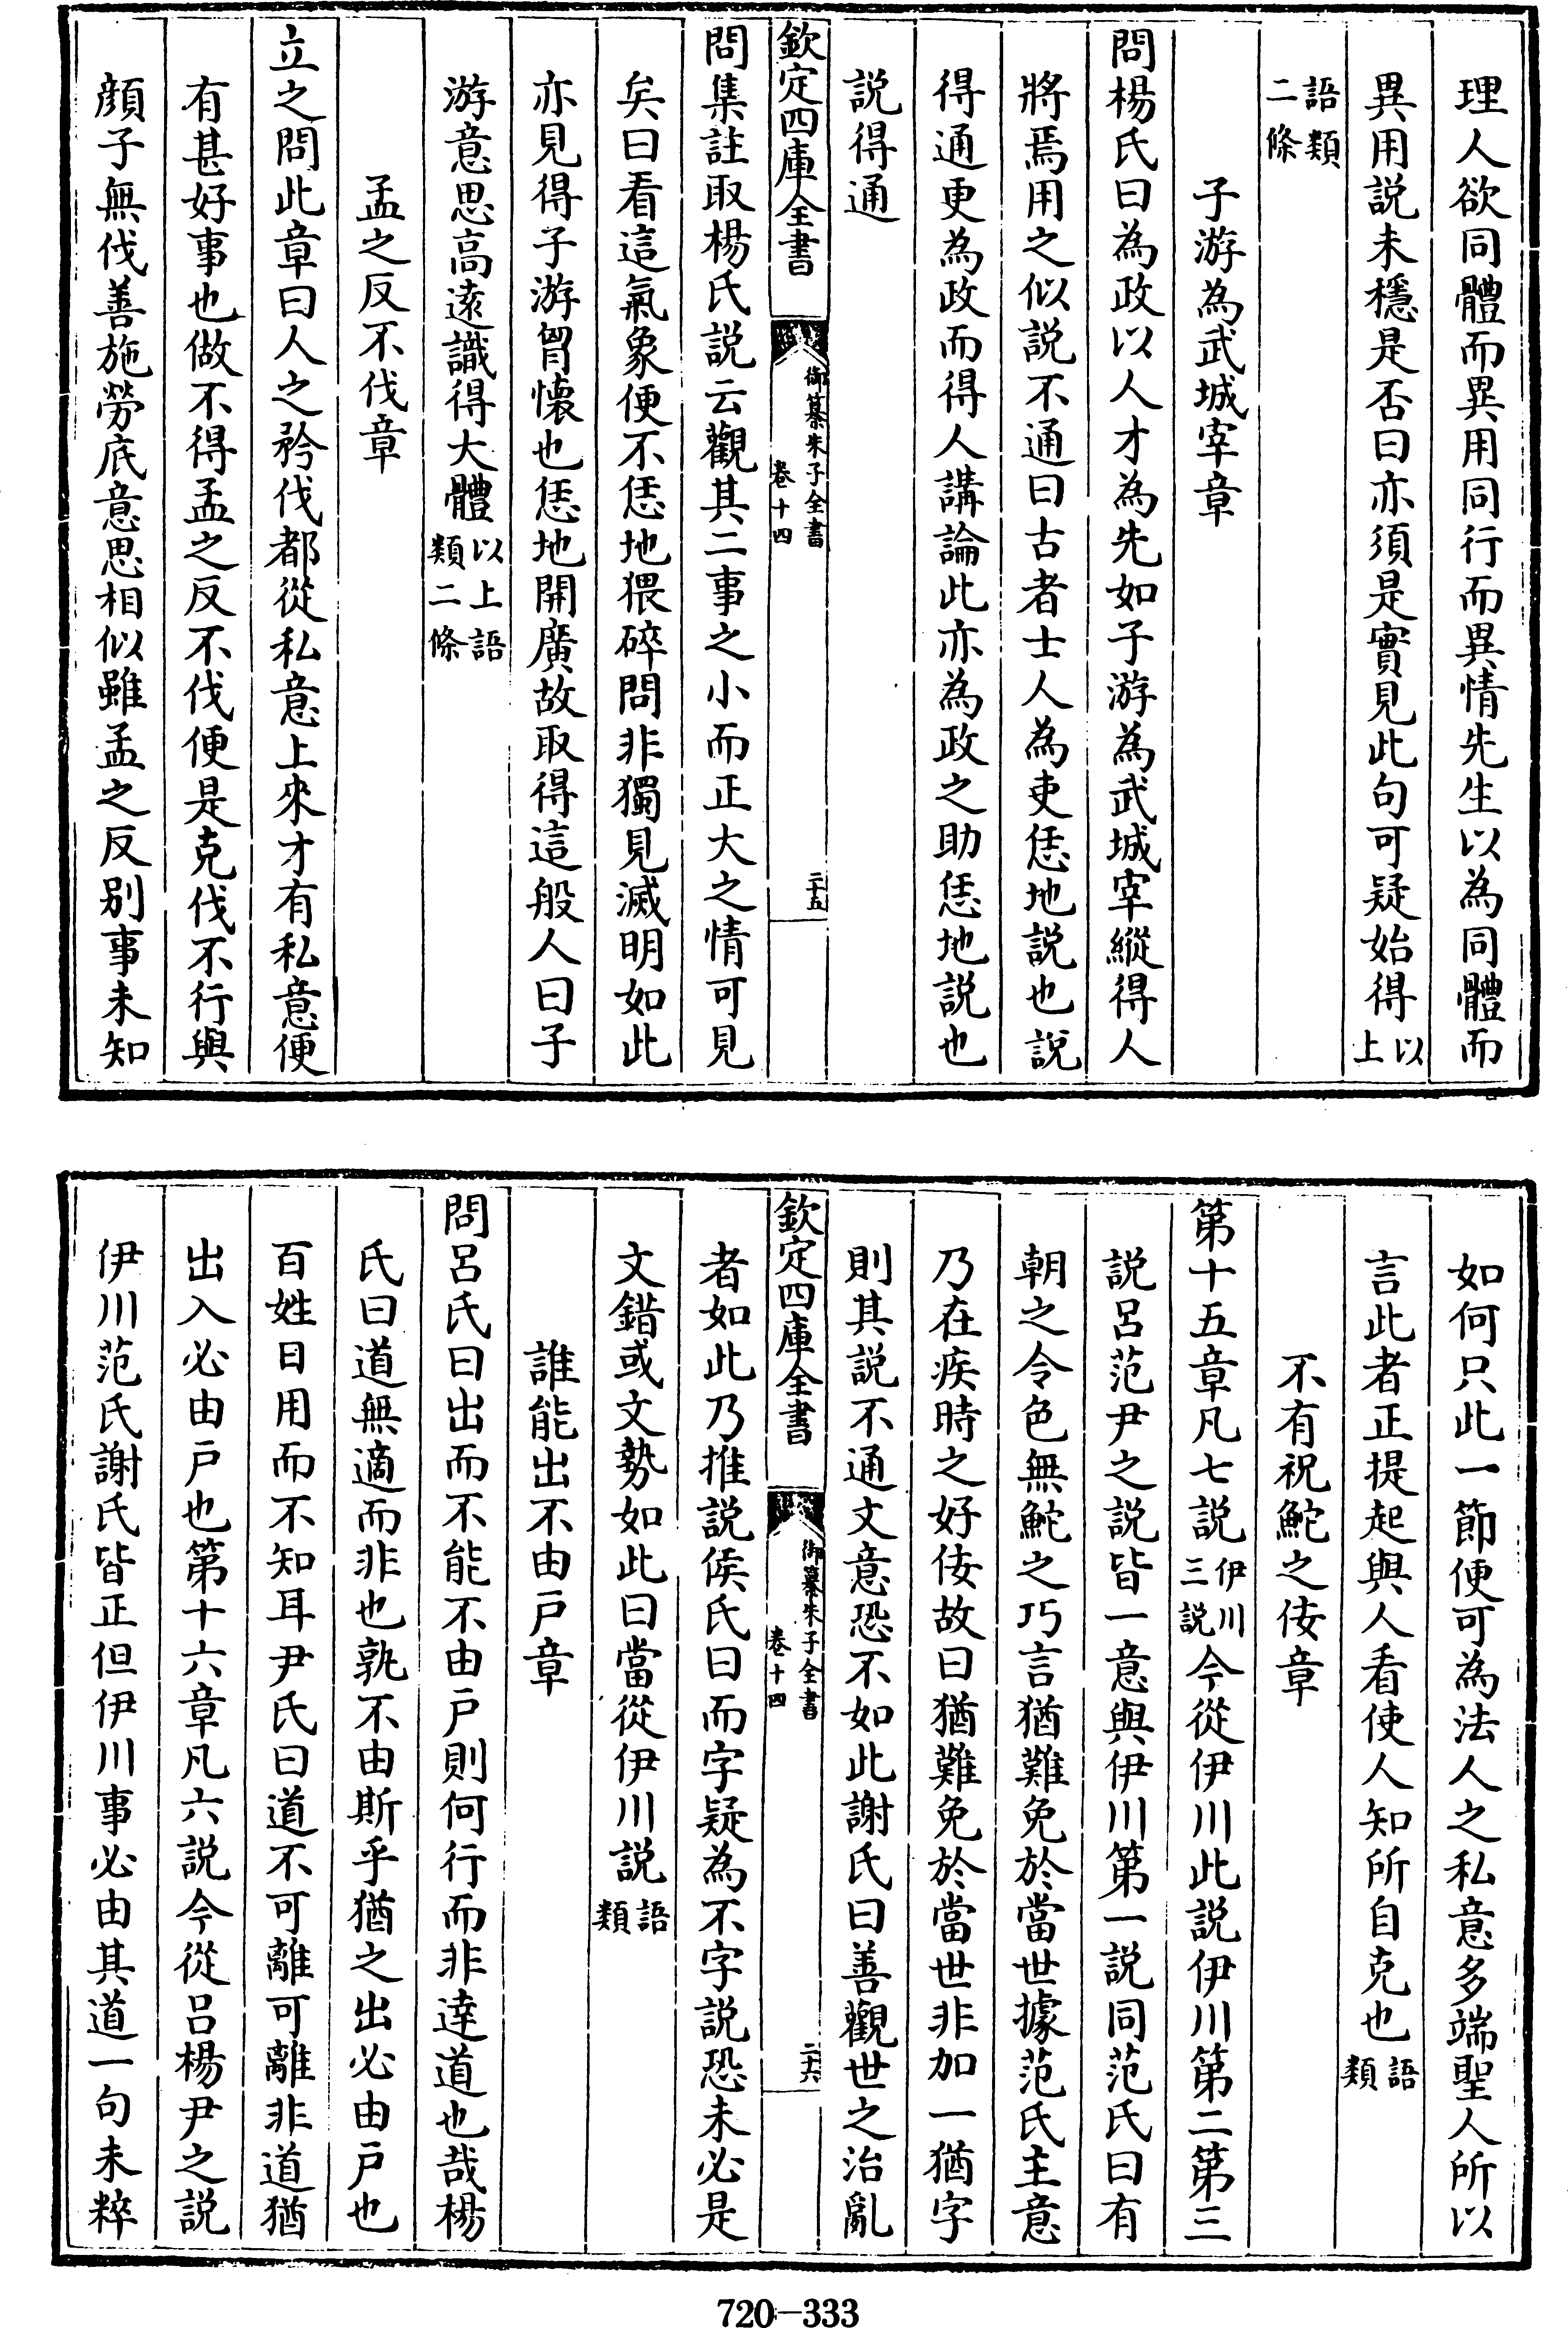 理人欲同體而異用同行而異情先生以為同體而
異用説未穩是否曰亦須是實見此句可疑始得以上
語類二條
子游為武城宰章
問楊氏曰為政以人才為先如子游為武城宰縱得人
將焉用之似説不通曰古者士人為吏恁地説也説
得通更為政而得人講論此亦為政之助恁地説也
説得通
欽定四庫全書
御纂朱子全書
卷十四
二十五
問集註取楊氏説云觀其二事之小而正大之情可見
矣曰看這氣象便不恁地猥碎問非獨見滅明如此
亦見得子游胷懷也恁地開廣故取得這般人曰子
游意思高遠識得大體以上語類二條
孟之反不伐章
立之問此章曰人之矜伐都從私意上來才有私意便
有甚好事也做不得孟之反不伐便是克伐不行與
顔子無伐善施勞底意思相似雖孟之反别事未知
如何只此一節便可為法人之私意多端聖人所以
言此者正提起與人看使人知所自克也語類
不有祝鮀之佞章
第十五章凡七説伊川三説今從伊川此説伊川第二第三
説呂范尹之説皆一意與伊川第一説同范氏曰有
朝之令色無鮀之巧言猶難免於當世據范氏主意
乃在疾時之好佞故曰猶難免於當世非加一猶字
則其説不通文意恐不如此謝氏曰善觀世之治亂
欽定四庫全書
御纂朱子全書
卷十四
二十六
者如此乃推説侯氏曰而字疑為不字説恐未必是
文錯或文勢如此曰當從伊川説語類
誰能出不由戶章
問呂氏曰出而不能不由戶則何行而非逹道也哉楊
氏曰道無適而非也孰不由斯乎猶之出必由戶也
百姓日用而不知耳尹氏曰道不可離可離非道猶
出入必由戶也第十六章凡六説今從呂楊尹之説
伊川范氏謝氏皆正但伊川事必由其道一句未粹
720-333